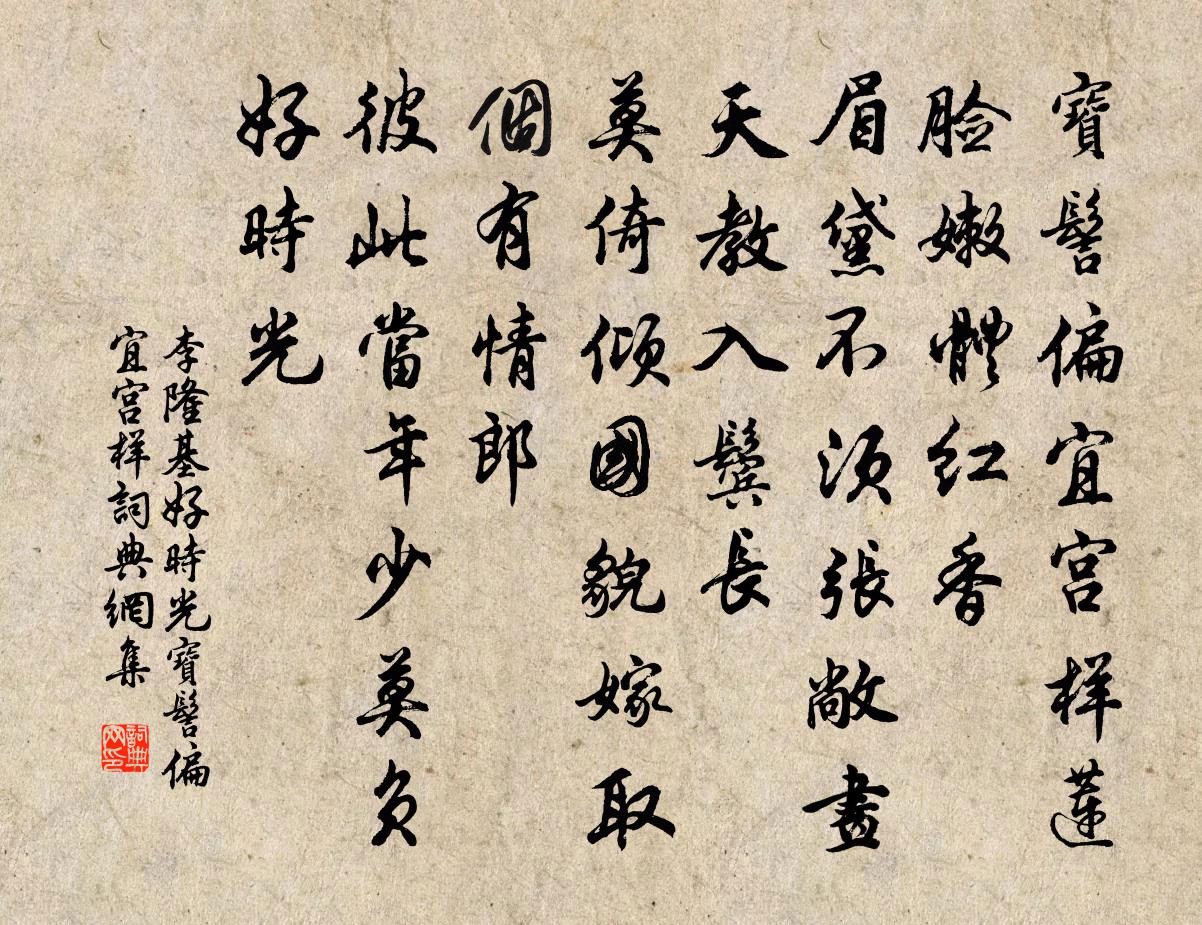 寶髻偏宜宫样蓮
脸嫩體红香
眉黛不须張敞畫
天教入鬓長
莫倚傾國貌嫁取
個有情郎
彼此當年少莫负
好時光
李隆基好時光寶髻偏
宜宫样詞典網集
詞典网印